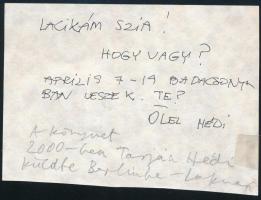 LACIKÁM SZIA!
HOGY VAGY?
APRILIS 7-19 BADACSONYI
BAN LESZEK. TE?
ÖLEL HÉDI
A könyvet
2000-ben Tarján Hédi
küldte Berlinbe -